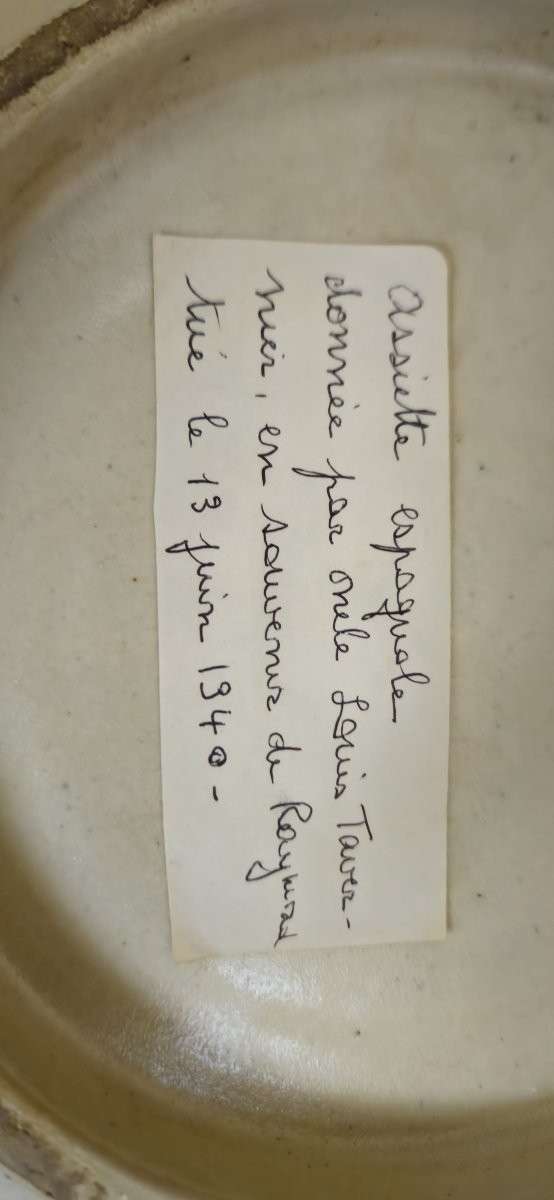 assiette espagnole
donnée par oncle Louis Taver-
nier, en souvenir de Raymond
tué le 13 juin 1940-